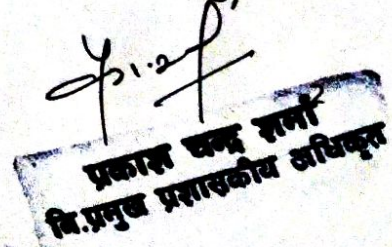 प्रकाश चन्द्र शर्मा
नि.प्रमुख प्रशासकीय अधिकृत